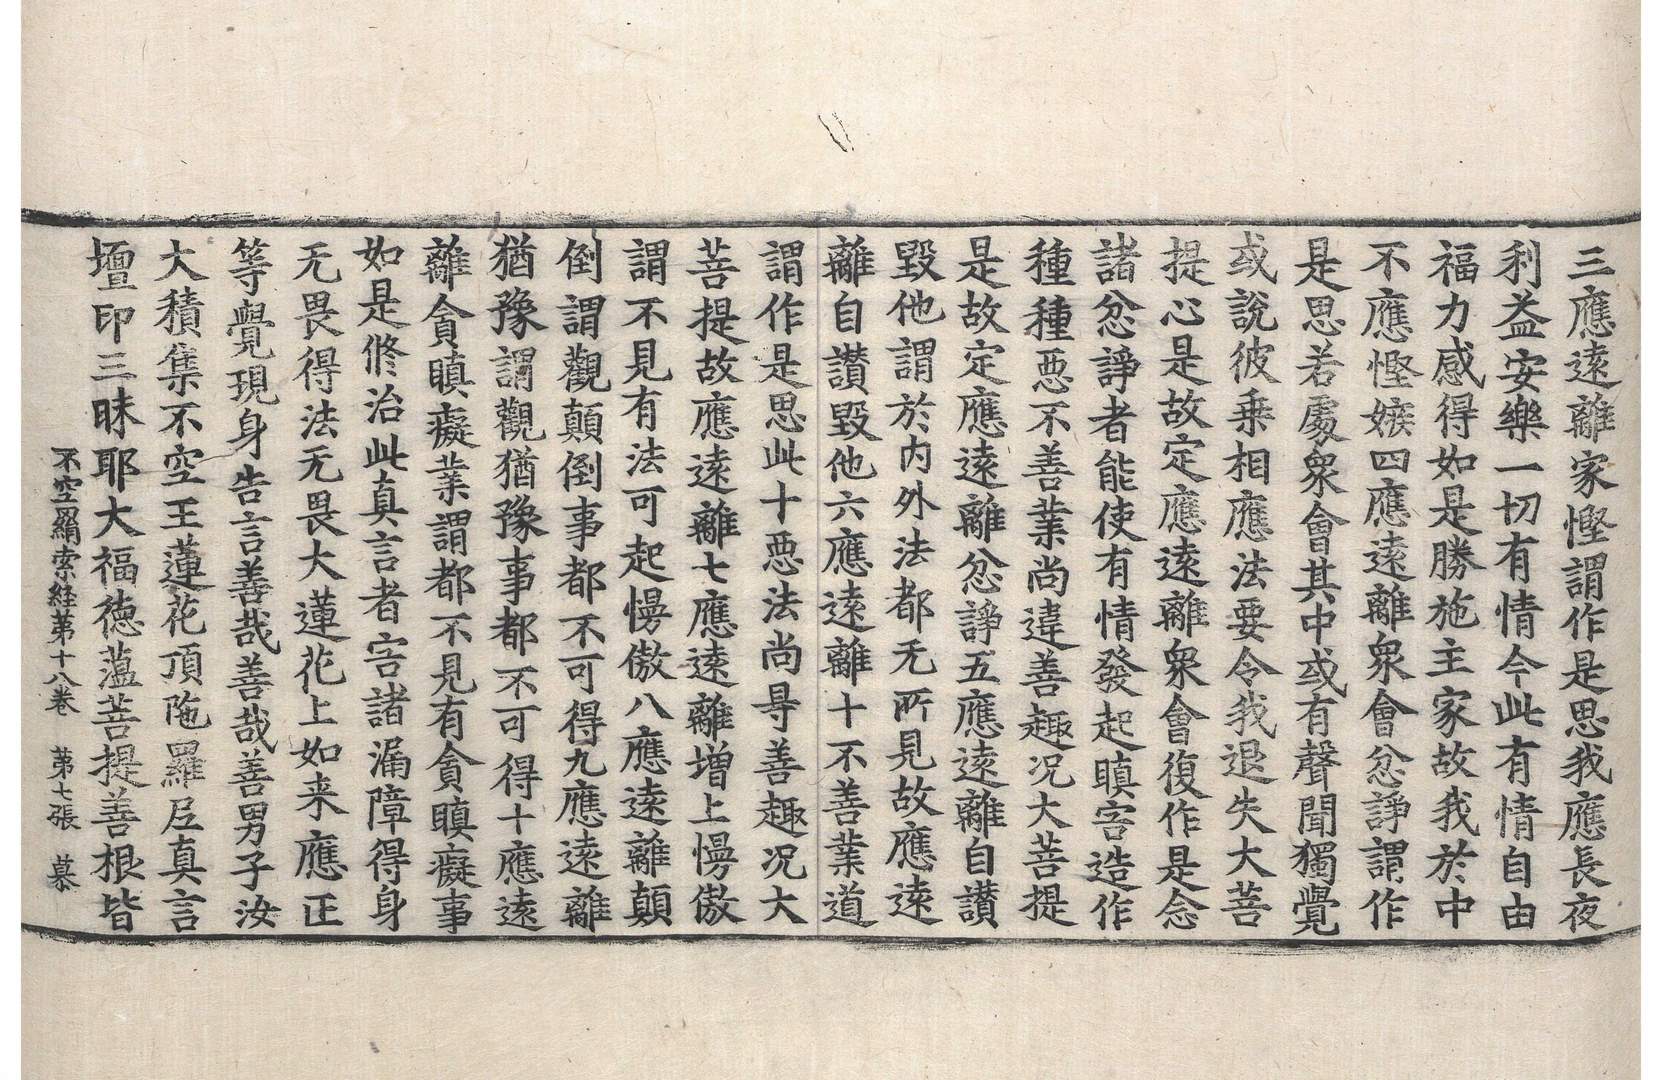 三應遠離家慳謂作是思我應長夜
利益安樂一切有情今此有情自由
福力感得如是勝施主家故我於中
不應慳嫉四應遠離衆會忿諍謂作
是思若處衆會其中或有聲聞獨覺
或說彼乗相應法要令我退失大菩
提心是故定應遠離衆會復作是念
諸忿諍者能使有情發起瞋害造作
種種惡不善業尚違善趣况大菩提
是故定應遠離忿諍五應遠離自讃
毀他謂於内外法都无所見故應遠
離自讃毀他六應遠離十不善業道
謂作是思此十惡法尚㝵善趣况大
菩提故應遠離七應遠離増上慢傲
謂不見有法可起慢傲八應遠離顛
倒謂觀顛倒事都不可得九應遠離
猶豫謂觀猶豫事都不可得十應遠
離貪瞋癡業謂都不見有貪瞋癡事
如是脩治此真言者害諸漏障得身
无畏得法无畏大蓮花上如来應正
等覺現身告言善哉善哉善男子汝
大積集不空王蓮花頂陁羅尼真言
壇印三昧耶大福德薀菩提善根皆
不空羂索経苐十八卷　苐七張　慕